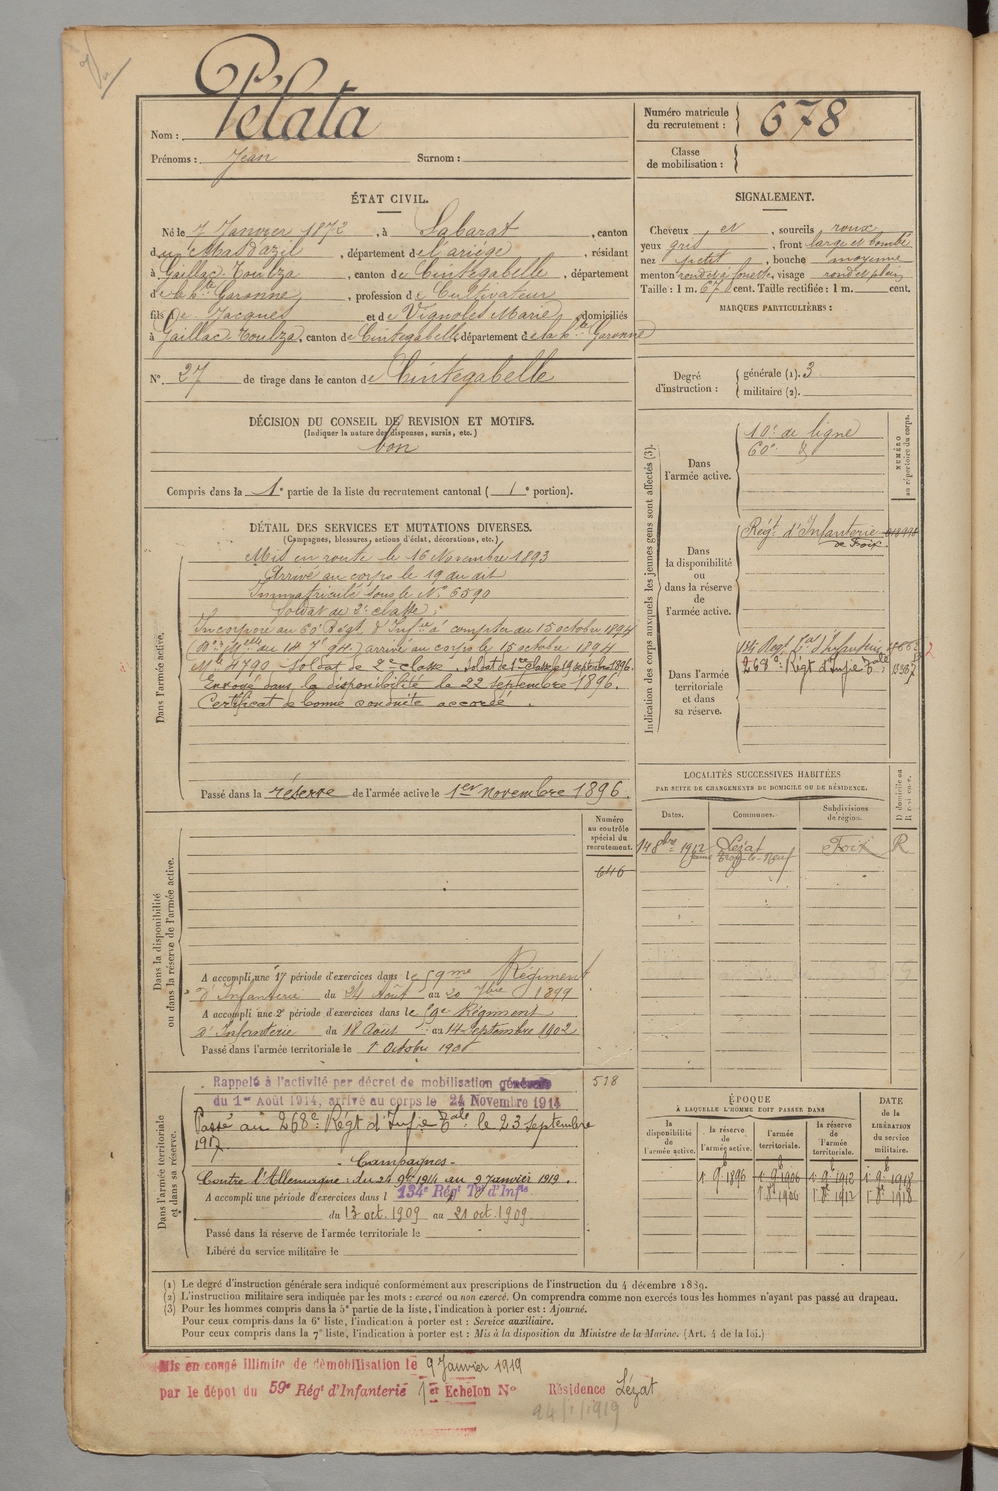 Pelata
Nom :
Prénoms : Jean Surnom :
Numéro matricule du recrutement : 678
Classe de mobilisation :
ÉTAT CIVIL.
Né le 7 Janvier 1872, à Sabarat, canton
du Mas d'azil, département de l'ariège, résidant
à Gaillac-Toulza, canton de Cintegabelle, département
de la hte Garonne, profession de Cultivateur
fils de Jacques et de Vignoles Marie, domiciliés
à Gaillac-Toulza, canton de Cintegabelle, département de la hte Garonne
N° 27 de tirage dans le canton de Cintegabelle
SIGNALEMENT.
Cheveux et, sourcils roux
yeux gris, front large et bombé
nez petit, bouche moyenne
menton rond et à fossette, visage rond et plein
Taille : 1 m. 67 cent. Taille rectifiée : 1 m. cent.
MARQUES PARTICULIÈRES :
Degré d'instruction : générale (1). 3
militaire (2).
DÉCISION DU CONSEIL DE REVISION ET MOTIFS.
(Indiquer la nature des dispenses, sursis, etc.)
bon
Compris dans la 1e partie de la liste du recrutement cantonal ( 1e portion).
DÉTAIL DES SERVICES ET MUTATIONS DIVERSES.
(Campagnes, blessures, actions d'éclat, décorations, etc.)
Dans l'armée active.
Mis en route le 16 Novembre 1893
Arrivé au corps le 19 du dit
Immatriculé sous le N° 6590
Soldat de 2e classe ;
Incorporé au 60e Régt d'Infie à compter du 15 octobre 1894
arrivé au corps le 15 octobre 1894
Mle 4790 Soldat de 2e classe. Soldat de 1re classe le 19 septembre 1896.
Envoyé dans la disponibilité le 22 septembre 1896.
Certificat de bonne conduite accordé.
Passé dans la réserve de l'armée active le 1er novembre 1896.
Indication des corps auxquels les jeunes gens sont affectés (3).
NUMÉRO au répertoire du corps.
Dans l'armée active.
10e de ligne
60e d°
Dans la disponibilité ou dans la réserve de l'armée active.
Régt d'Infanterie
de Foix.
Dans l'armée territoriale et dans sa réserve.
134 Reg. Ter d'Infanterie
268e Régt d'Infie Tale
LOCALITÉS SUCCESSIVES HABITÉES
PAR SUITE DE CHANGEMENTS DE DOMICILE OU DE RÉSIDENCE.
Dates. Communes. Subdivisions de région. D domicile ou R résidence.
14 8bre 1912 Lézat Foix R
Dans la disponibilité ou dans la réserve de l'armée active.
Numéro au contrôle spécial du recrutement.
646
A accompli une 1e période d'exercices dans le 59me Régiment
d'Infanterie du 24 Août au 20 7bre 1899
A accompli une 2e période d'exercices dans le 59e Régiment
d'Infanterie du 18 Août au 14 Septembre 1902
Passé dans l'armée territoriale le 1er Octobre 1906
Dans l'armée territoriale et dans sa réserve.
538
Rappelé à l'activité par décret de mobilisation générale
du 1er Août 1914, arrivé au corps le 24 Novembre 1914
Passé au 268e Régt d'Infie Tale le 23 septembre
1917.
- Campagnes -
Contre l'Allemagne : du 24 9bre 1914 au 9 Janvier 1919.
A accompli une période d'exercices dans l 134e Régt Tal d'Infie
du 13 oct. 1909 au 21 oct. 1909.
Passé dans la réserve de l'armée territoriale le
Libéré du service militaire le
ÉPOQUE
À LAQUELLE L'HOMME DOIT PASSER DANS
DATE de la LIBÉRATION du service militaire.
la disponibilité de l'armée active. la réserve de l'armée active. l'armée territoriale. la réserve de l'armée territoriale.
1 9b 1896 1 9b 1906 1 9b 1912 1 9b 1918
1 8b 1906 1 8b 1912 1 8b 1918
(1) Le degré d'instruction générale sera indiqué conformément aux prescriptions de l'instruction du 4 décembre 1889.
(2) L'instruction militaire sera indiquée par les mots : exercé ou non exercé. On comprendra comme non exercés tous les hommes n'ayant pas passé au drapeau.
(3) Pour les hommes compris dans la 5e partie de la liste, l'indication à porter est : Ajourné.
Pour ceux compris dans la 6e liste, l'indication à porter est : Service auxiliaire.
Pour ceux compris dans la 7e liste, l'indication à porter est : Mis à la disposition du Ministre de la Marine. (Art. 4 de la loi.)
Mis en congé illimité de démobilisation le 9 Janvier 1919
par le dépôt du 59e Régt d'Infanterie 1er Echelon N° Résidence Lézat
24/1/1919